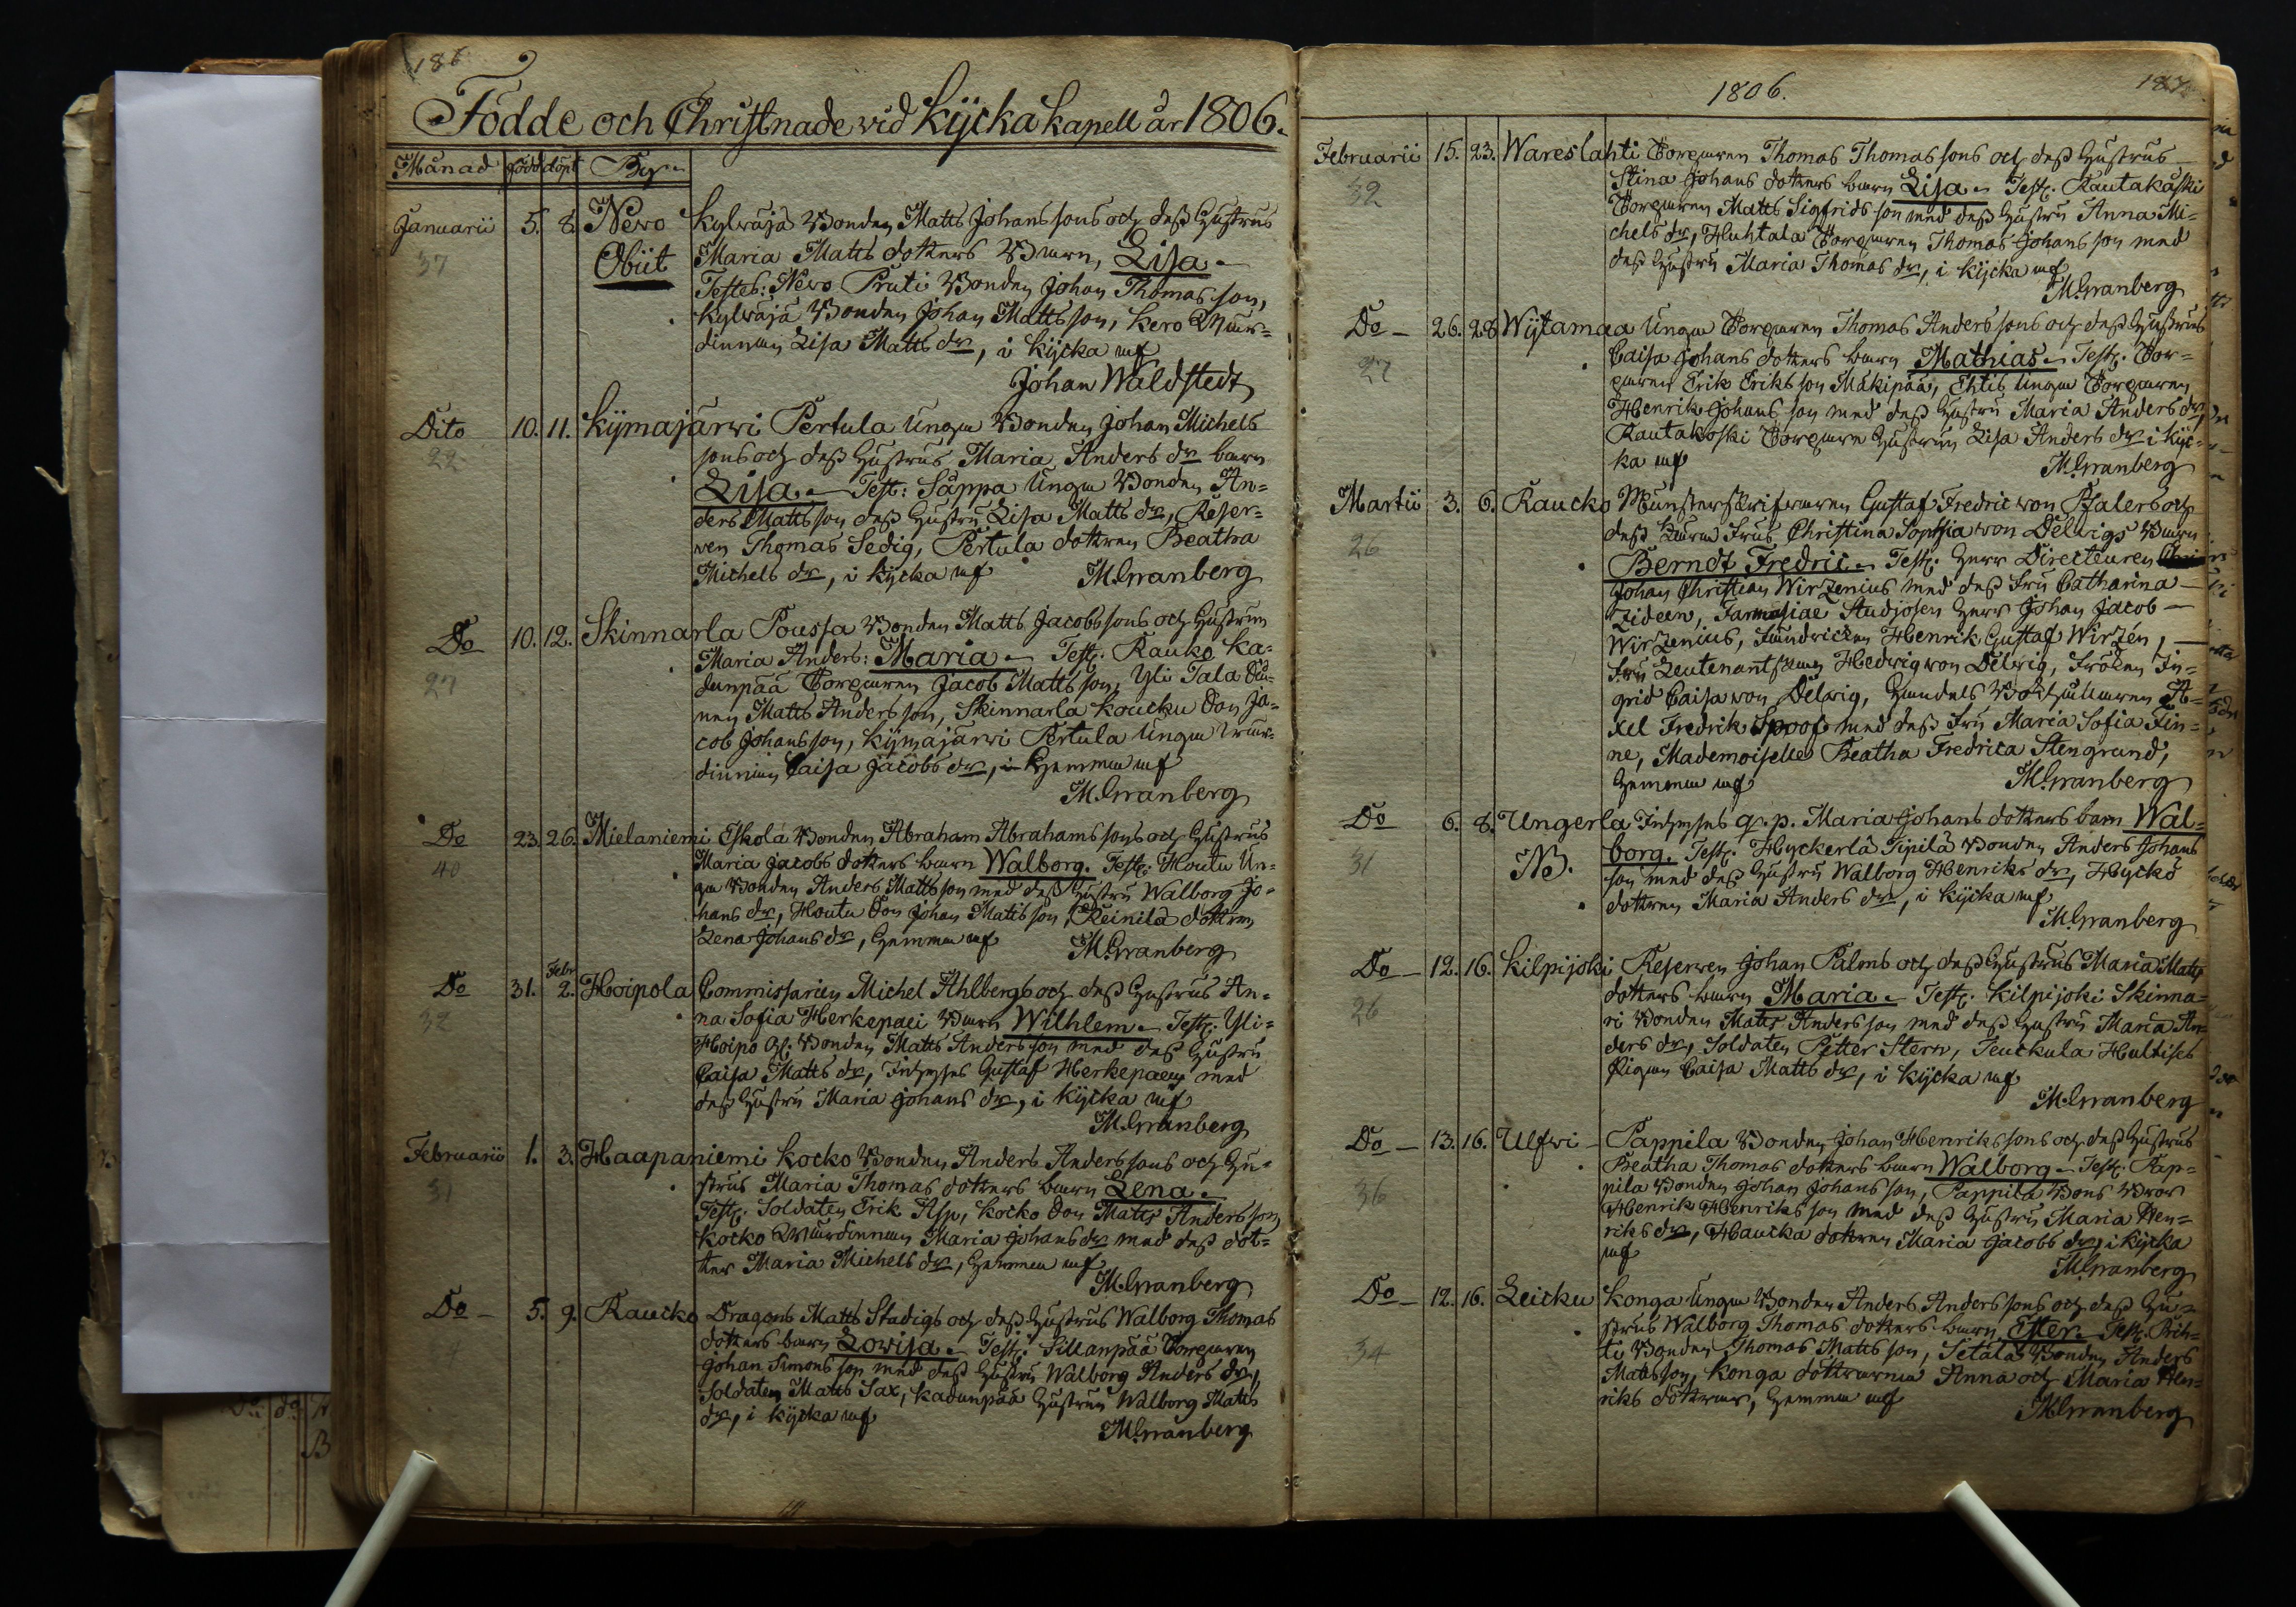 186
Födde och Christnade vid Kÿcka Kapell år 1806.
Månad född döpt By
Januarii 5. 8. Nevo Kylväjä Bonden Matts Johans sons och dess Hustrus
37 Obiit Maria Matts dotters Barn, Lisa
Testes: Nevo Pruti Bonden Johan Thomas son,
Kylväjä Bonden Johan Matts son, Kero
dinnan Lisa Matts dr, i Kÿcka mf
Johan Waldstedt
Dito 10. 11. Kÿmajärwi Pertula Unga Bonden Johan Michels
22 sons och dess Hustrus Maria Anders dr barn
Lisa. Test: Säppä Unga Bonden An=
ders Matts son dess Hustru Lisa Matts dr, Reser=
ven Thomas Sedig, Pertula dottren Beatha
Michels dr, i Kÿcka mf M. Granberg
Do 10. 12. Skinnarla Poussa Bonden Matts Jacobs sons och Hustrun
27 Maria Anders: Maria Test: Rauko Ka=
dunpää Torparen Jacob Matts son, Yli Tala
nen Matts Anders son, Skinnarla Koucku Son Ja=
cob Johans son, Kÿmajärwi Pertula Unga
dinnan Caisa Jacobs dr, i Hemmen mf
M. Granberg
Do 23. 26. Mielaniemi Eskola Bonden Abraham Abrahams sons och Hustrus
40 Maria Jacobs dotters barn Walborg. Test: Houtu Un=
ga Bonden Anders Matts son med dess Hustru Walborg Jo=
hans dr, Houtu Son Johan Matts son, Reinilä dottren
Lena Johans dr, Hemmen mf M. Granberg
Do 31. Febr 2. Hoipola Commissarien Michel Ahlbergs och dess Hustrus An=
32 na Sofia Herkepaei Barn Wilhlem Test: Yli=
Hoipo Bonden Matts Anders son med dess Hustru
Caisa Matts dr, Inhyses Gustaf Herkepaeus med
dess Hustru Maria Johans dr, i Kÿcka mf
M. Granberg
Februarii 1. 3. Haapaniemi Kocko Bonden Anders Anders sons och Hu=
31 strus Maria Thomas dotters barn Lena.
Test: Soldaten Erik Asp, Kocko Son Matts Anders son,
Kocko Maria Johans dr med dess dot=
ter Maria Michels dr, Hemmen mf
M. Granberg
Do 5. 9. Raucko Dragons Matts Stadigs och dess Hustrus Walborg Thomas
dotters barn Lovisa. Test: Sillanpää Torparen
Johan Simons son med dess Hustru Walborg Anders dr,
Soldaten Matts Sax, Kadunpää Hustrun Walborg Matts
dr, i Kÿcka mf
M. Granberg
1806. 187
Februarii 15. 23. Wareslahti Torparen Thomas Thomas sons och dess Hustrus
32 Stina Johans dotters barn Lisa Test: Rautakåski
Torparen Matts Sigfrids son med dess Hustru Anna Mi=
chels dr, Huhtala Torparen Thomas Johans son med
dess Hustru Maria Thomas dr, i Kÿcka mf
M. Granberg
Do 26. 28 Wÿtamaa Unga Torparen Thomas Anders sons och dess Hustrus
27 Caisa Johans dotters barn Mathias Test: Tor=
paren Erik Eriks son Mäkipää, Ehtis Unga Torparen
Henrik Johans son med dess Hustru Maria Anders dr,
Rautakoski Torpare Hustrun Lisa Anders dr i Kÿc=
ka mf M. Granberg
Martii 3. 6. Raucko Munsterskrifvaren Gustaf Fredric von Pfalers och
26 dess Frus Christina Sophia von Delvigs Barn
Berndt Fredric. Test: Herr Directeuren
Johan Christian Wirzenius med dess Fru Catharina
Zideen, Farmasiae Studjosen Herr Johan Jacob
Wirzenius, Henrik Gustaf Wirzén,
Fru Leutenantskan Hedvig von Delwig, Fröken In=
grid Caisa von Delvig, Handels Bokhållaren A=
xel Fredrik Spoof med dess Fru Maria Sofia Fin=
ne, Mademoiselle Beatha Fredrica Stengrund,
Hemmen mf M. Granberg
Do 6. 8. Ungerla Inhyses q. p. Maria Johans dotters barn Wal=
31 NB. borg. Test: Hyckerlä Sipilä Bonden Anders Johans
son med dess Hustru Walborg Henriks dr, Hyckö
dottren Maria Anders dr, i Kÿcka mf
M. Granberg
Do 12. 16. Kilpijoki Reserven Johan Palms och dess Hustrus Maria Matts
26 dotters barn Maria Test: Kilpijoki Skinna=
ri Bonden Matts Anders son med dess Hustru Maria An=
ders dr, Soldaten Petter Stern, Jeuckula Hultises
Pigan Caisa Matts dr, i Kÿcka mf
M. Granberg
Do 13. 16. Ulfwi Pappila Bonden Johan Henriks sons och dess Hustrus
36 Beatha Thomas dotters barn Walborg Test: Pap=
pila Bonden Johan Johans son, Pappila Bons Bror
Henrik Henriks son med dess Hustru Maria Hen=
riks dr, Haucka dottren Maria Jacobs dr, i Kÿcka
mf
M. Granberg
Do 12. 16. Leicku Konga Unga Bonden Anders Anders sons och dess Hu=
34 strus Walborg Thomas dotters barn Ester. Test: Prih=
ti Bonden Thomas Matts son, Setälä Bonden Anders
Matts son, Konga döttrarna Anna och Maria Hen=
riks döttrar, Hemmen mf
M. Granberg